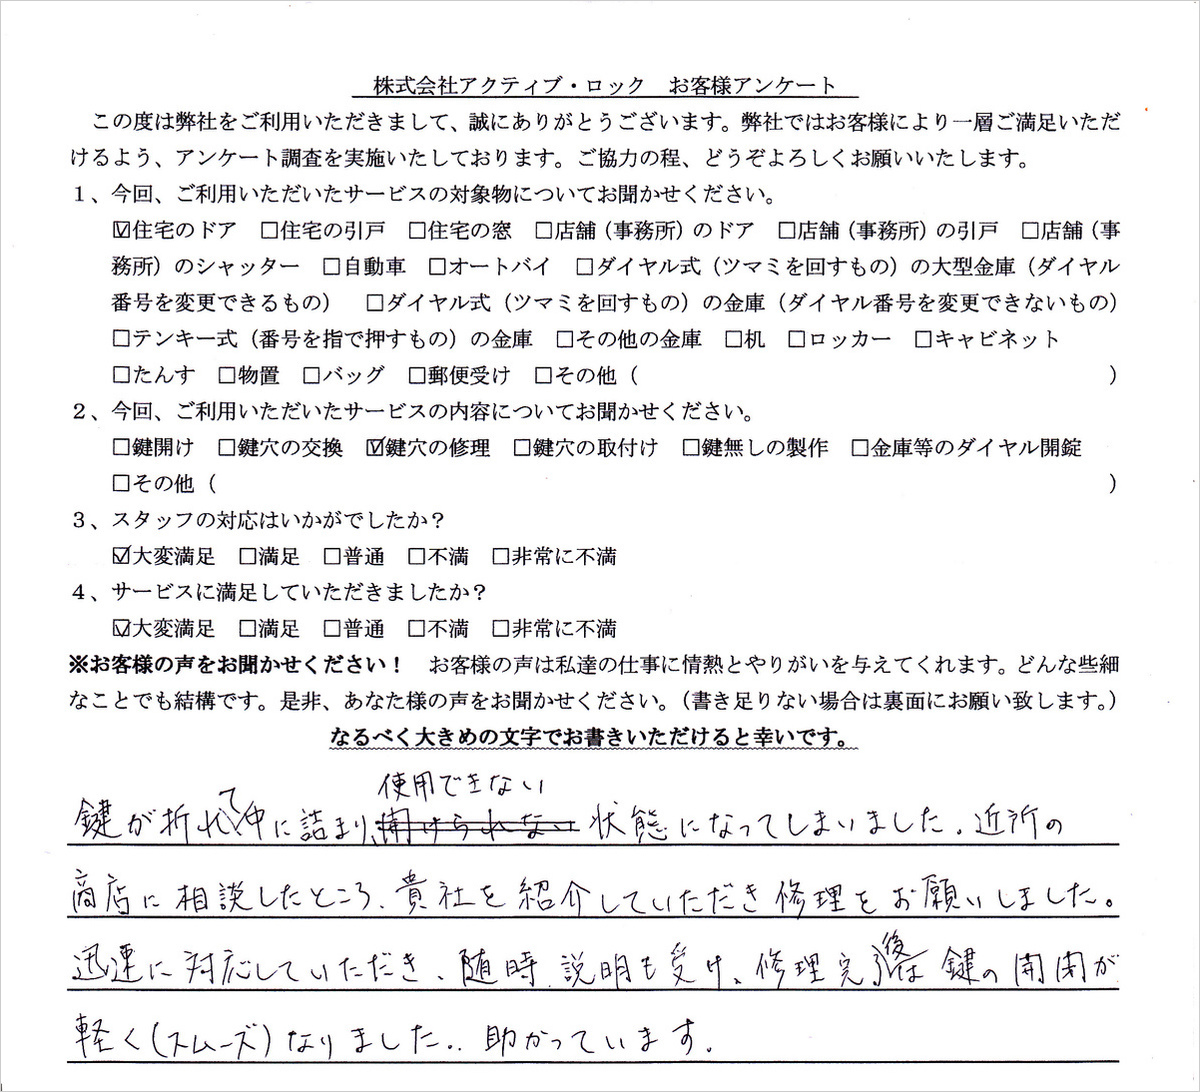 株式会社アクティブ・ロック　お客様アンケート
この度は弊社をご利用いただきまして、誠にありがとうございます。弊社ではお客様により一層ご満足いただ
けるよう、アンケート調査を実施いたしております。ご協力の程、どうぞよろしくお願いいたします。
１、今回、ご利用いただいたサービスの対象物についてお聞かせください。
☑住宅のドア　□住宅の引戸　□住宅の窓　□店舗（事務所）のドア　□店舗（事務所）の引戸　□店舗（事
務所）のシャッター　□自動車　□オートバイ　□ダイヤル式（ツマミを回すもの）の大型金庫（ダイヤル
番号を変更できるもの）　□ダイヤル式（ツマミを回すもの）の金庫（ダイヤル番号を変更できないもの）
□テンキー式（番号を指で押すもの）の金庫　□その他の金庫　□机　□ロッカー　□キャビネット
□たんす　□物置　□バッグ　□郵便受け　□その他（　　　　　　　　　　）
２、今回、ご利用いただいたサービスの内容についてお聞かせください。
□鍵開け　□鍵穴の交換　☑鍵穴の修理　□鍵穴の取付け　□鍵無しの製作　□金庫等のダイヤル開錠
□その他（　　　　　　　　　　）
３、スタッフの対応はいかがでしたか？
☑大変満足　□満足　□普通　□不満　□非常に不満
４、サービスに満足していただきましたか？
☑大変満足　□満足　□普通　□不満　□非常に不満
※お客様の声をお聞かせください！　お客様の声は私達の仕事に情熱とやりがいを与えてくれます。どんな些細
なことでも結構です。是非、あなた様の声をお聞かせください。（書き足りない場合は裏面にお願い致します。）
なるべく大きめの文字でお書きいただけると幸いです。
使用できない
鍵が折れて中に詰まり、開けられない状態になってしまいました。近所の
商店に相談したところ、貴社を紹介していただき修理をお願いしました。
迅速に対応していただき、随時説明も受け、修理完了後は鍵の開閉が
軽く(スムーズ)なりました。助かっています。